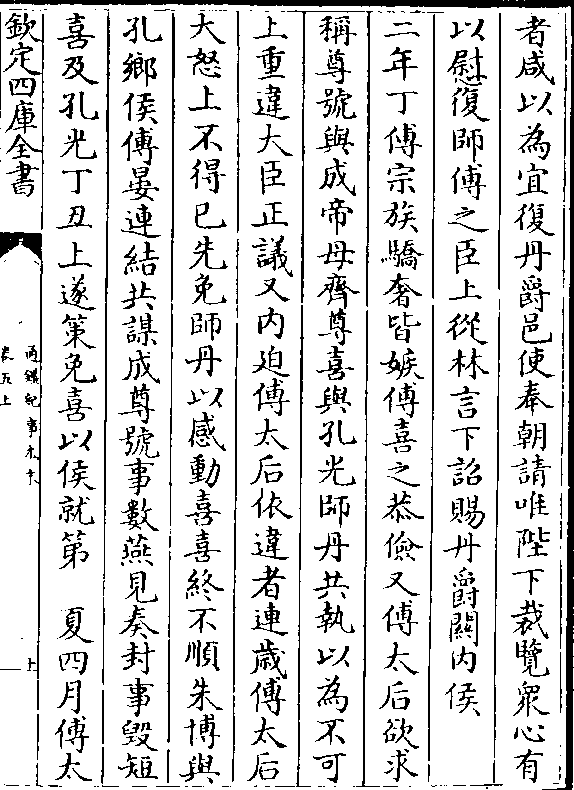 者咸以為宜復丹爵邑使奉朝請唯陛下裁覽衆心有
以慰復師傅之臣上從林言下詔賜丹爵關内侯
二年丁傅宗族驕奢皆嫉傅喜之恭儉又傅太后欲求
稱尊號與成帝母齊尊喜與孔光師丹共執以為不可
上重違大臣正議又内迫傅太后依違者連歲傅太后
大怒上不得已先免師丹以感動喜喜終不順朱博與
孔鄉侯傅晏連結共謀成尊號事數燕見奏封事毁短
喜及孔光丁丑上遂策免喜以侯就第　夏四月傅太
欽定四庫全書
通鑑紀事本末
卷五上
上